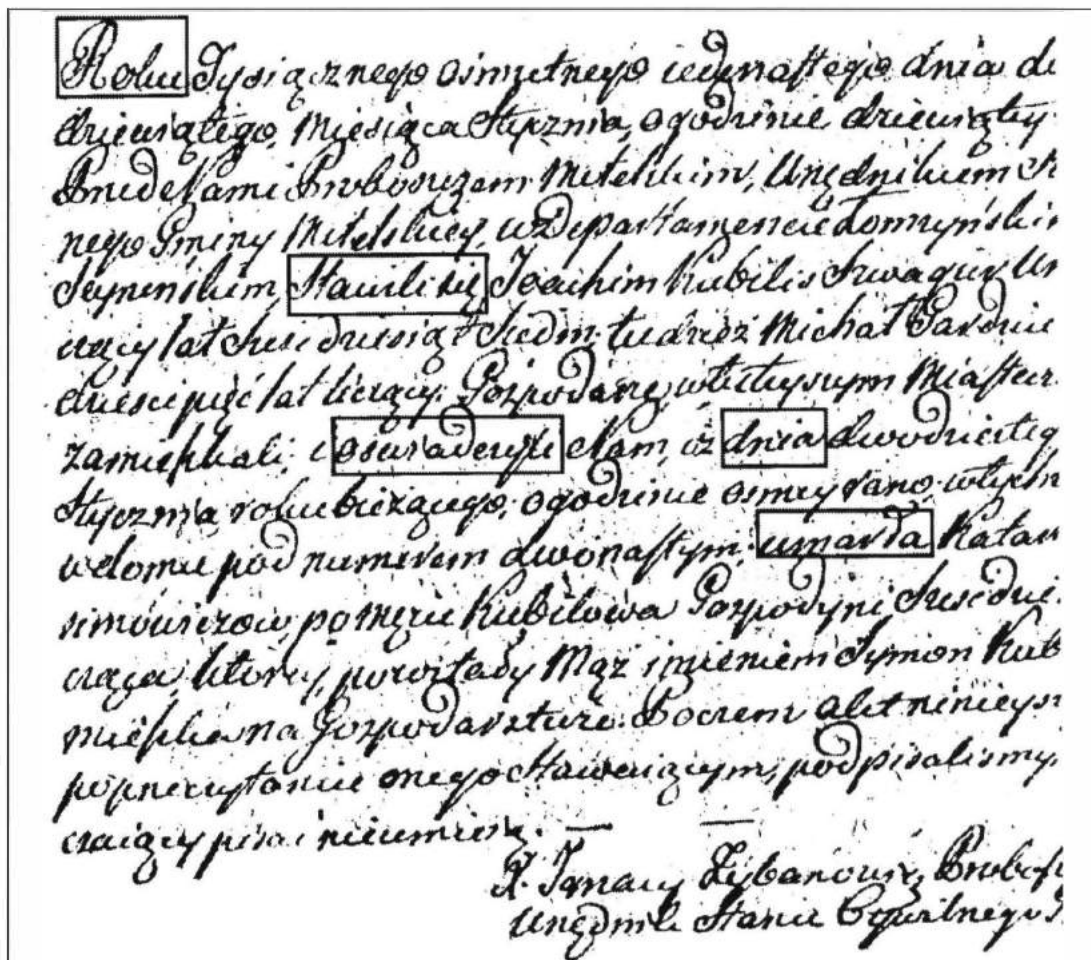 Roku Tysiącznego ośmsetnego iedenastego dnia d
dziewiątego, Miesiąca Stycznia, o godzinie dziewiątey
Przed Nami Proboszczem Metelskim, Urzędnikiem
nego Gminy Metelskiey, w Departamencie Łomżyński
Seynenskim, Stawili się, Joachim Kubilis Szwagier,
czący lat sześćdziesiąt siedm, tudzież Michał
dzieści pięć lat liczący: Gospodarze, w tutyszym Miastecz
zamieszkali; i oswiadczyli Nam, iż dnia dwudziesteg
Stycznia, roku bieżącego, o godzinie osmey rano, w tym
w domu pod numerem dwónastym: umarła Katar
simówiczów, po mężu Kubilowa Gospodyni sześćdzie
cząca, którey, pozostały Mąż imieniem Symon Kub
mieszka na Gospodarstwie. Poczem akt ninieysz
po przeczytaniu onego Stawaiącym, podpisaliśmy,
czaiący pisać nieumieią. —
X. Ignacy Probos
Urzędnik Stanu Cywilnego